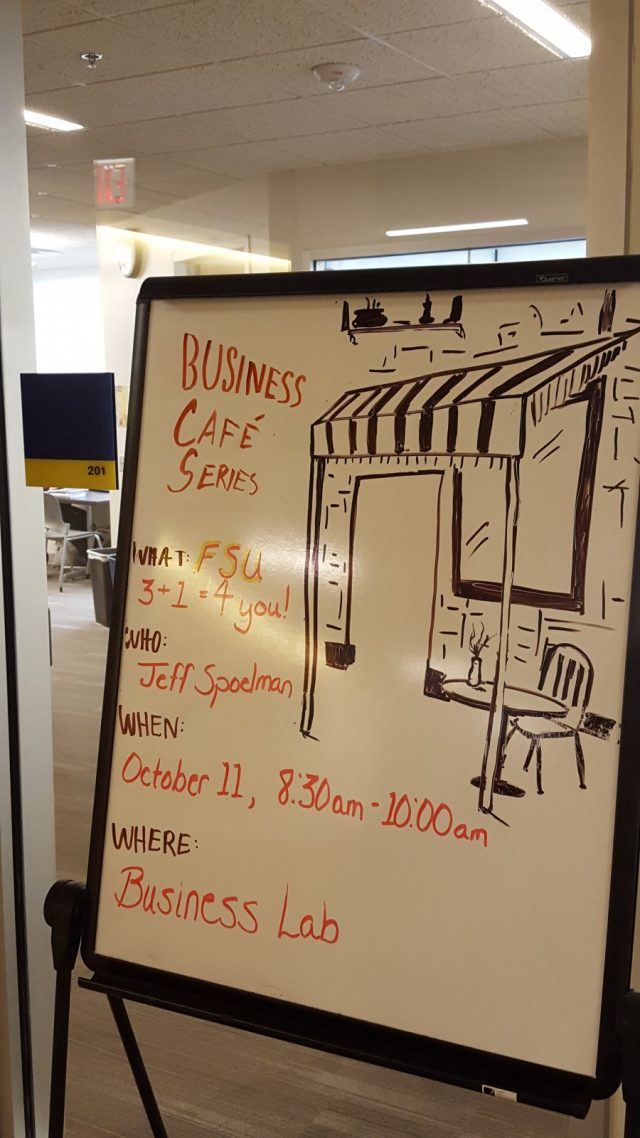 Quartet
BUSINESS
CAFÉ
SERIES
201
WHAT: FSU
3+1 = 4 you!
WHO:
Jeff Spoelman
WHEN:
October 11, 8:30am - 10:00am
WHERE:
Business Lab